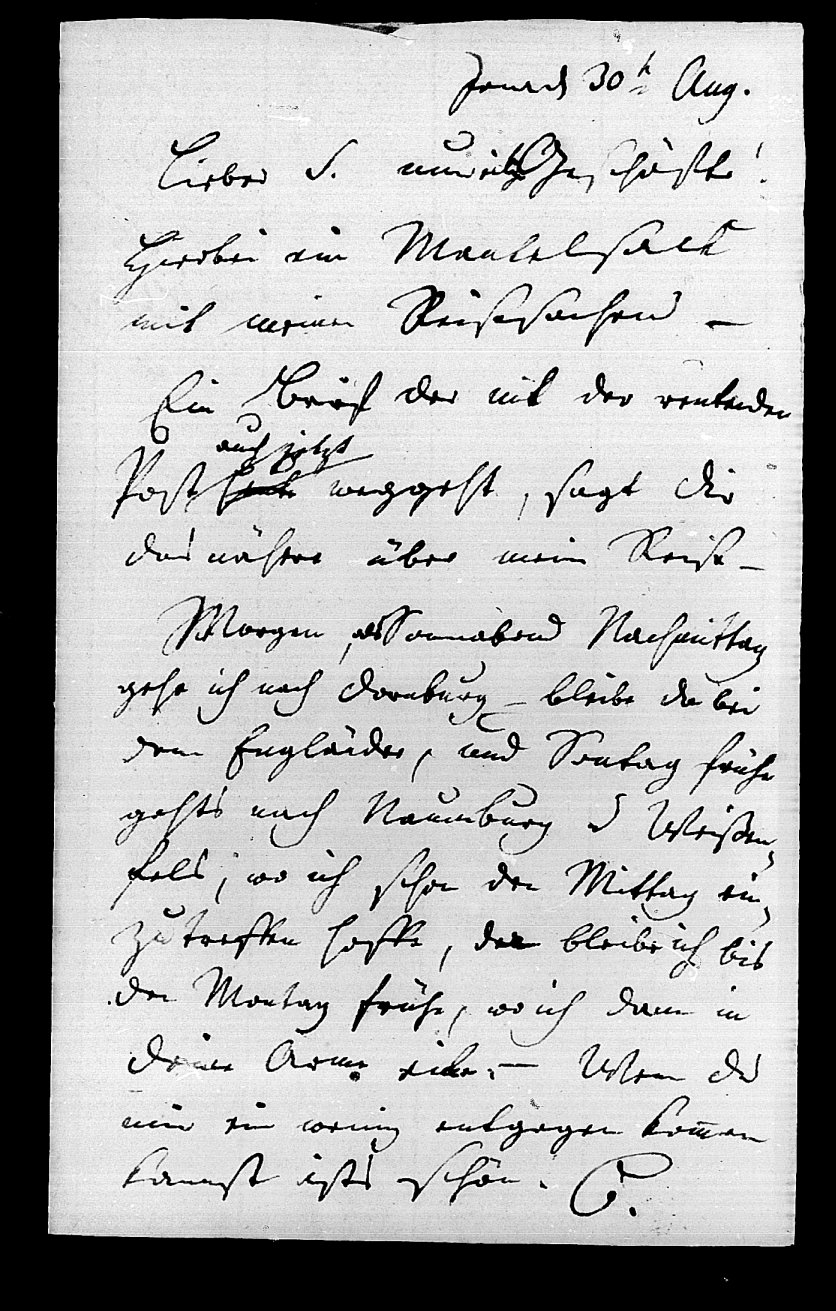 Jena d 30t Aug.
Lieber S. nur Geschäfte!
Hierbei ein Mantelsack
mit meinen Reisesachen —
Ein Brief der mit der reitenden
auch jetzt
Post weggeht, sagt dir
das nähere über mein Reise —
Morgen, als Sonnabend Nachmittag
gehe ich nach Dornburg — bleibe da bei
dem Engländer, und Sontag frühe
gehts nach Naumburg u Weißen-
fels, wo ich schon den Mittag ein-
zutreffen hoffe, da bleibe ich bis
den Montag frühe, wo ich dann in
deine Arme eile. — Wenn du
mir ein wenig entgegen kommen
kannst ists schön. C.